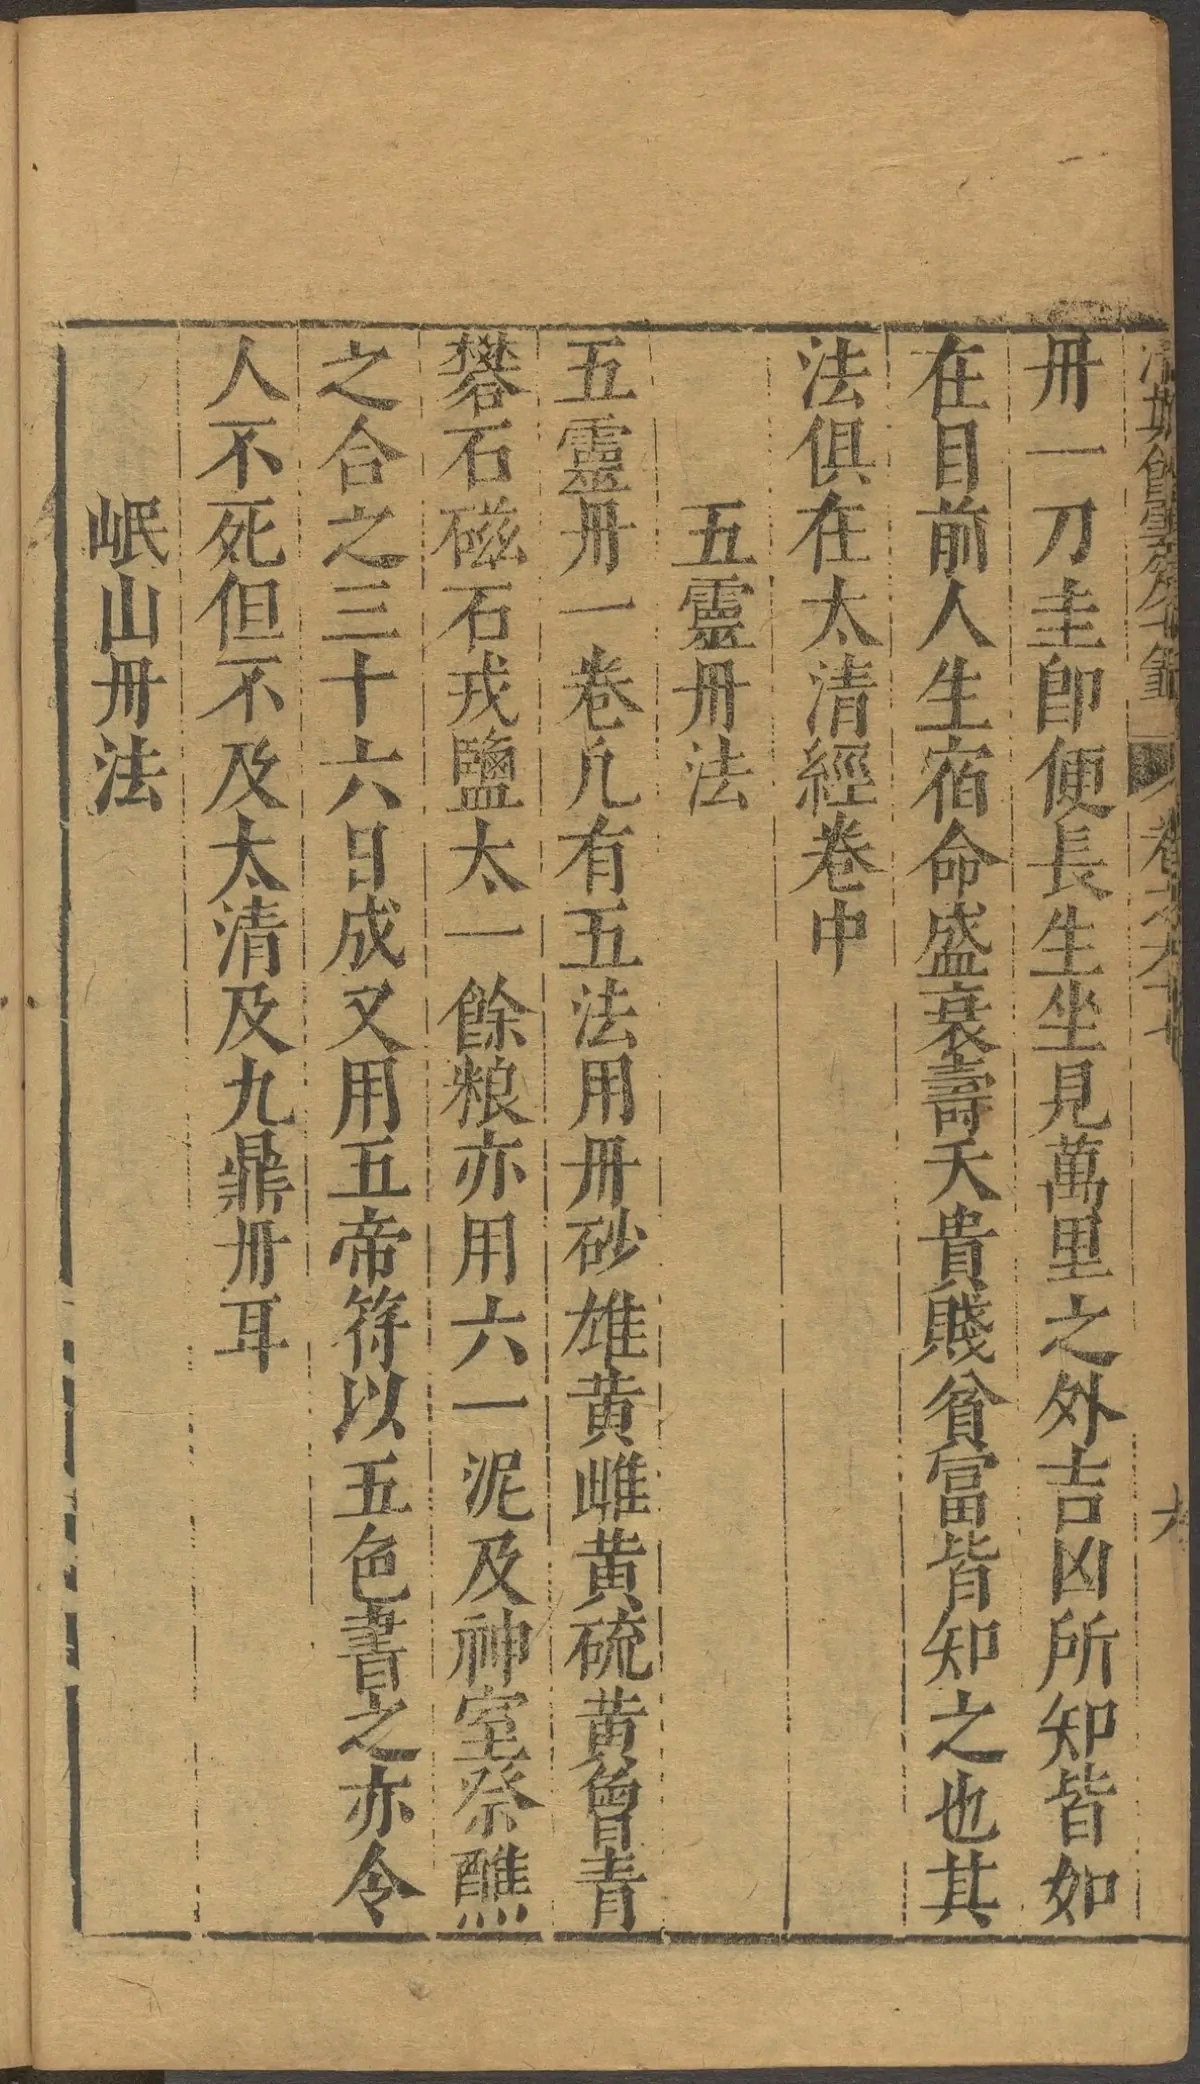 卷之六十七
九
丹一刀圭卽便長生坐見萬里之外吉凶所知皆如
在目前人生宿命盛衰壽夭貴賤貧富皆知之也其
法俱在太清經卷中
五靈丹法
五靈丹一卷凢有五法用丹砂雄黄雌黄硫黄曾青
礬石磁石戎鹽太一餘粮亦用六一泥及神室祭醮
之合之三十六日成又用五帝符以五色書之亦令
人不死但不及太清及九鼎丹耳
岷山丹法